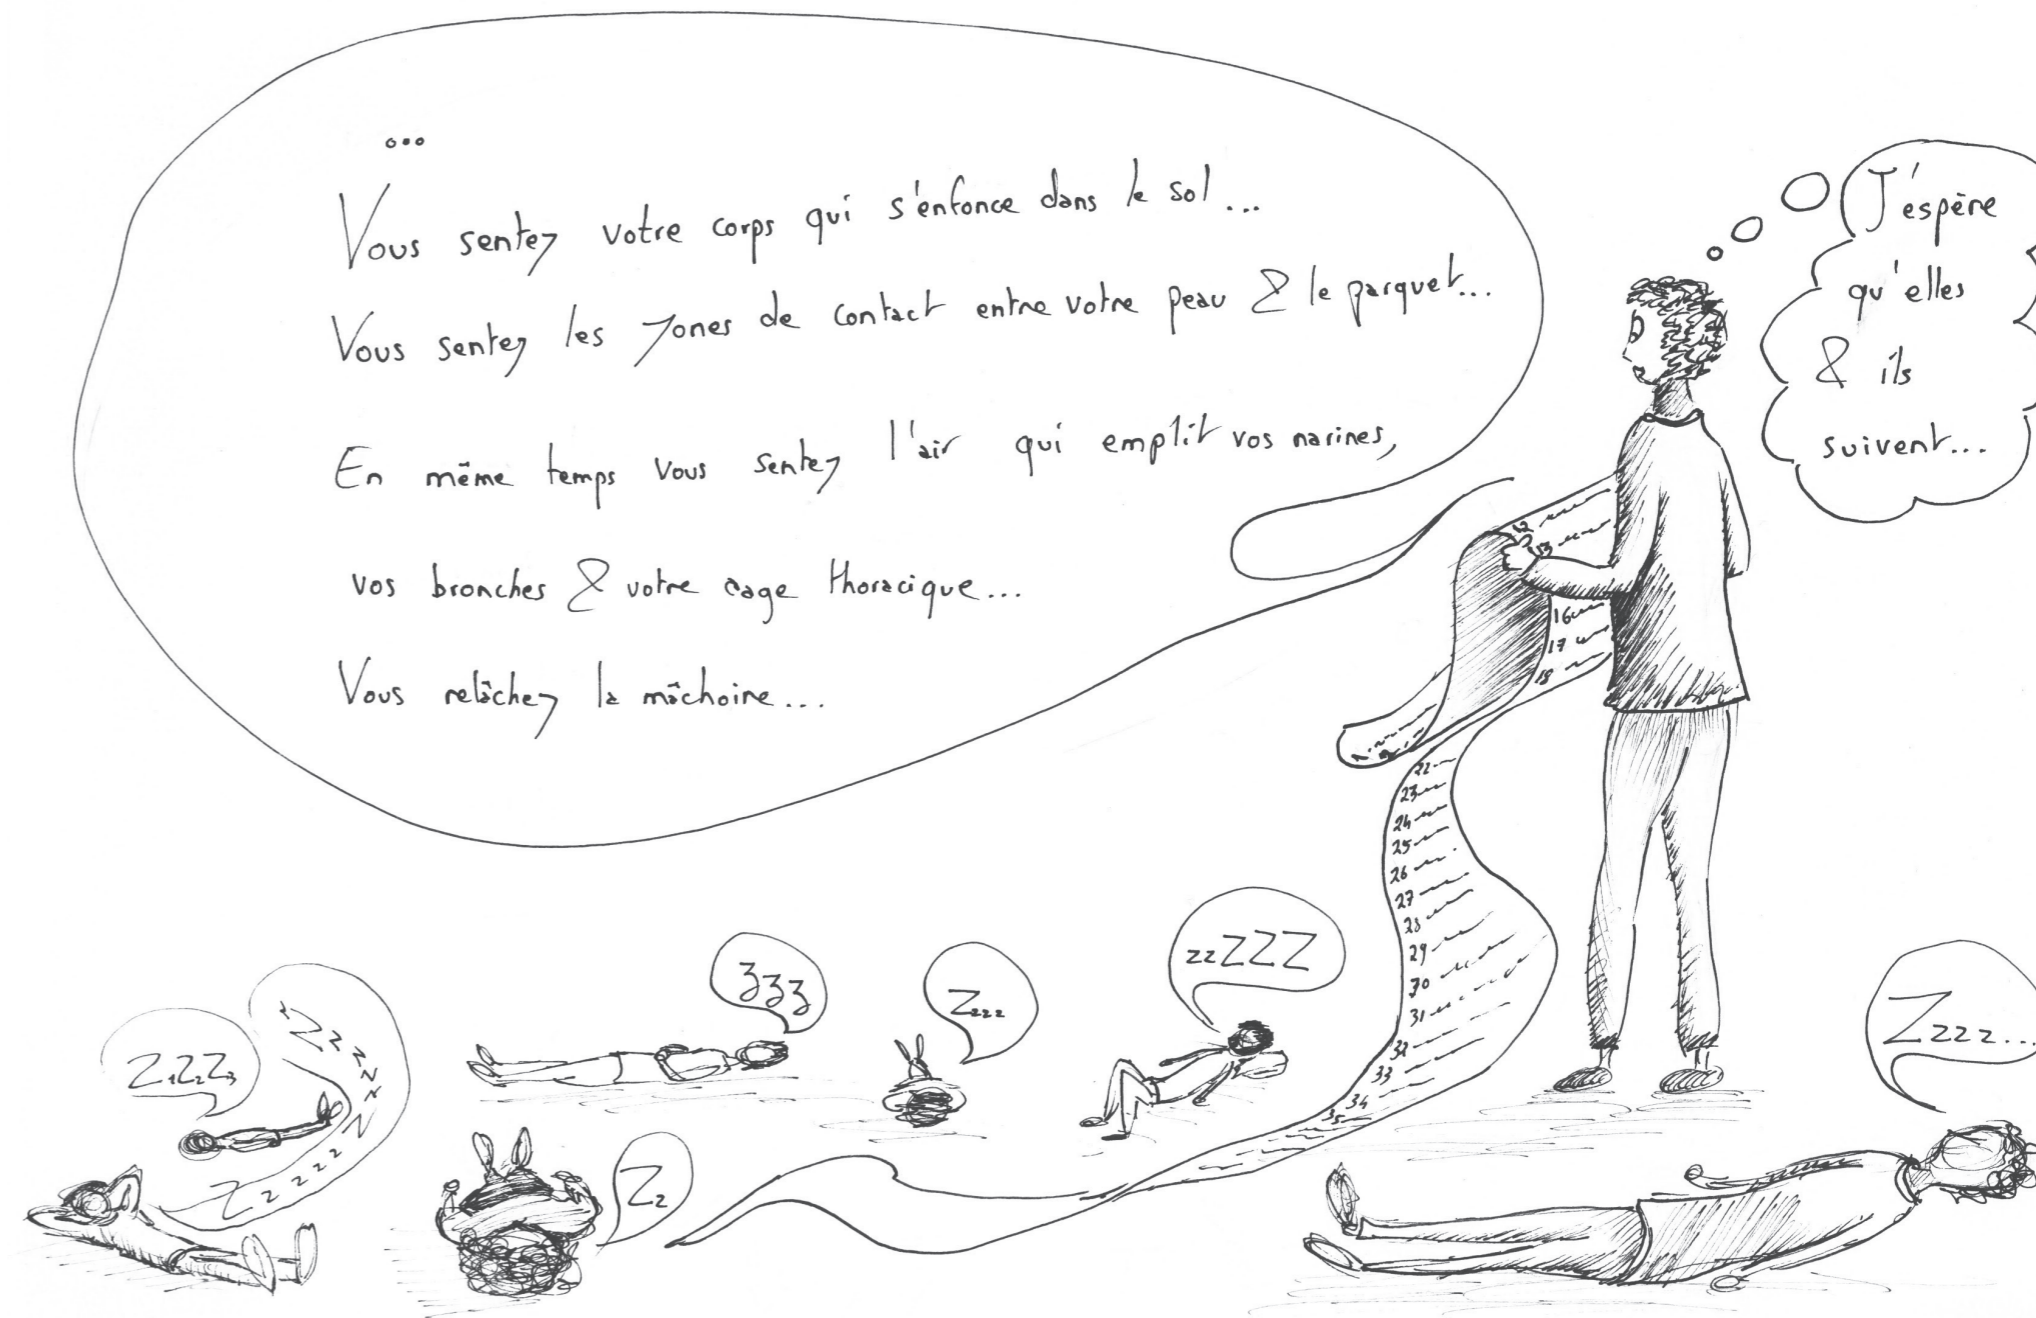 ...
Vous sentez votre corps qui s'enfonce dans le sol...
Vous sentez les zones de contact entre votre peau & le parquet...
En même temps vous sentez l'air qui emplit vos narines,
vos bronches & votre cage thoracique...
Vous relâchez la mâchoire...
J'espère
qu'elles
& ils
suivent...
12
13
16
17
18
22
23
24
25
26
27
28
29
30
31
32
33
34
35
zzZZZ
zzz
Zzzz
Zzzz...
Z1Z2Z3
ZzzzzzzZ
Zzzzzz
Zz